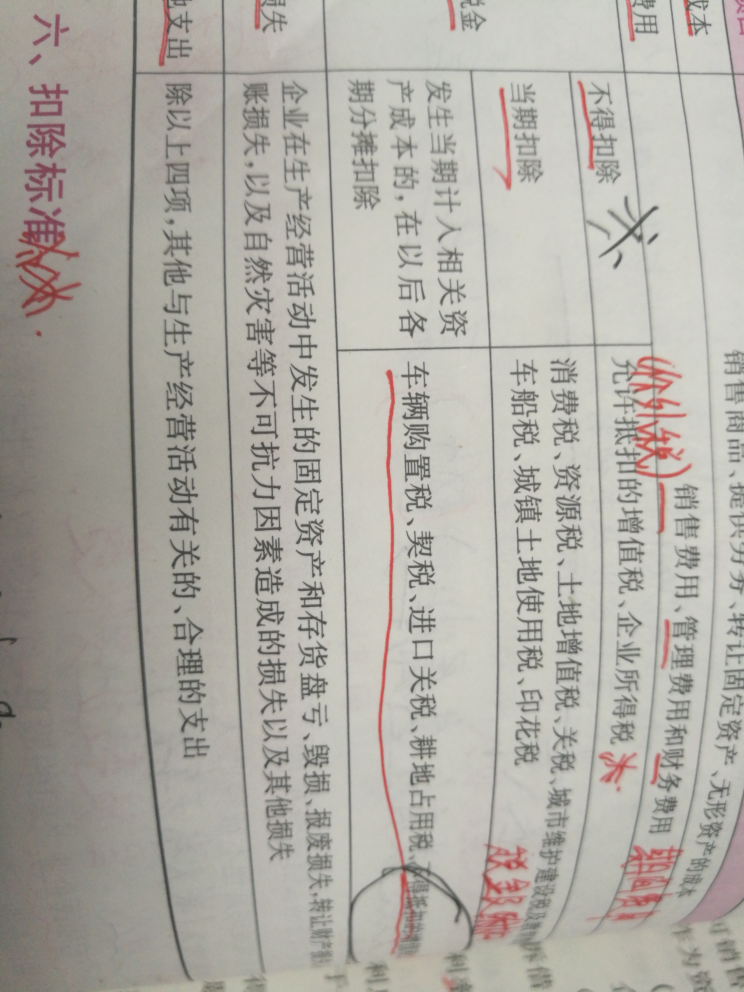 成本
销售商品、提供劳务、转让固定资产、无形资产的成本
费用
销售费用、管理费用和财务费用
税金
不得扣除
(价外税)
允许抵扣的增值税、企业所得税
当期扣除
消费税、资源税、土地增值税、关税、城市维护建设税及教育
车船税、城镇土地使用税、印花税
发生当期计入相关资
产成本的,在以后各
期分摊扣除
车辆购置税、契税、进口关税、耕地占用税、不得抵扣的增值
损失
企业在生产经营活动中发生的固定资产和存货盘亏、毁损、报废损失,转让财产损
账损失,以及自然灾害等不可抗力因素造成的损失以及其他损失
他支出
除以上四项,其他与生产经营活动有关的、合理的支出
六、扣除标准